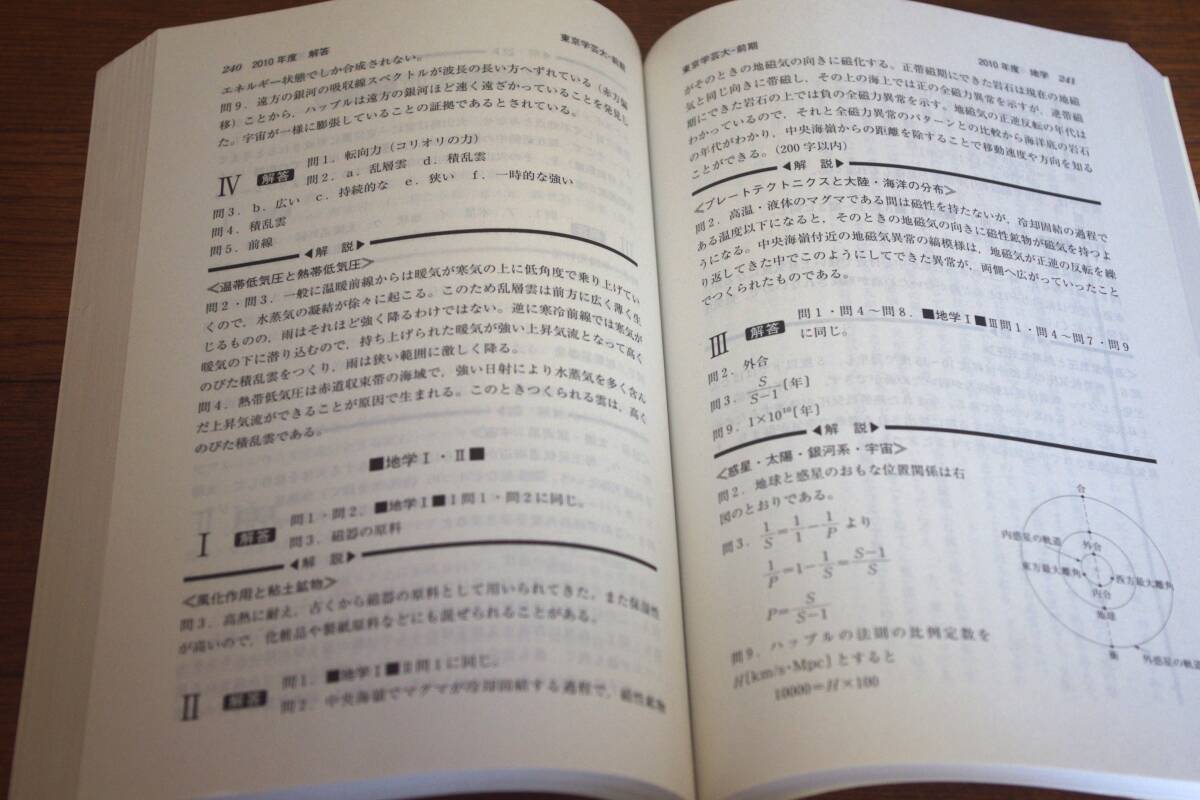 240 2010年度 解答
東京学芸大-前期
エネルギー状態でしか合成されない。
問9．遠方の銀河の吸収線スペクトルが波長の長い方へずれている（赤方偏
移）ことから，ハッブルは遠方の銀河ほど速く遠ざかっていることを発見し
た。宇宙が一様に膨張していることの証拠であるとされている。
Ⅳ 解答 問1．転向力（コリオリの力）
問2．a．乱層雲 d．積乱雲
問3．b．広い c．持続的な e．狭い f．一時的な強い
問4．積乱雲
問5．前線
◀解 説▶
＜温帯低気圧と熱帯低気圧＞
問2・問3．一般に温暖前線からは暖気が寒気の上に低角度で乗り上げてい
くので，水蒸気の凝結が徐々に起こる。このため乱層雲は前方に広く薄く生
じるものの，雨はそれほど強く降るわけではない。逆に寒冷前線では寒気が
暖気の下に潜り込むので，持ち上げられた暖気が強い上昇気流となって高く
のびた積乱雲をつくり，雨は狭い範囲に激しく降る。
問4．熱帯低気圧は赤道収束帯の海域で，強い日射により水蒸気を多く含ん
だ上昇気流ができることが原因で生まれる。このときつくられる雲は，高く
のびた積乱雲である。
■地学Ⅰ・Ⅱ■
Ⅰ 解答 問1・問2．■地学Ⅰ■Ⅰ問1・問2に同じ。
問3．磁器の原料
◀解 説▶
＜風化作用と粘土鉱物＞
問3．高熱に耐え，古くから磁器の原料として用いられてきた。また保湿性
が高いので，化粧品や製紙原料などにも混ぜられることがある。
Ⅱ 解答 問1．■地学Ⅰ■Ⅱ問1に同じ。
問2．中央海嶺でマグマが冷却固結する過程で，磁性鉱物
東京学芸大-前期
2010年度 地学 241
がそのときの地磁気の向きに磁化する。正帯磁期にできた岩石は現在の地磁
気と同じ向きに帯磁し，その上の海上では正の全磁力異常を示すが，逆帯磁
期にできた岩石の上では負の全磁力異常を示す。地磁気の正逆反転の年代は
わかっているので，それと全磁力異常のパターンとの比較から海洋底の岩石
の年代がわかり，中央海嶺からの距離を除することで移動速度や方向を知る
ことができる。（200字以内）
◀解 説▶
＜プレートテクトニクスと大陸・海洋の分布＞
問2．高温・液体のマグマである間は磁性を持たないが，冷却固結の過程で
ある温度以下になると，そのときの地磁気の向きに磁性鉱物が磁気を持つよ
うになる。中央海嶺付近の地磁気異常の縞模様は，地磁気が正逆の反転を繰
り返してきた中でこのようにしてできた異常が，両側へ広がっていったこと
でつくられたものである。
Ⅲ 解答 問1・問4～問8．■地学Ⅰ■Ⅲ問1・問4～問7・問9
に同じ。
問2．外合
問3．S/(S−1)〔年〕
問9．1×10¹⁰〔年〕
◀解 説▶
＜惑星・太陽・銀河系・宇宙＞
問2．地球と惑星のおもな位置関係は右
図のとおりである。
問3．1/S＝1/1−1/P より
1/P＝1−1/S＝(S−1)/S
P＝S/(S−1)
問9．ハッブルの法則の比例定数を
H〔km/s・Mpc〕とすると
10000＝H×100
合
内惑星の軌道
外合
東方最大離角
西方最大離角
内合
地球
衝
外惑星の軌道